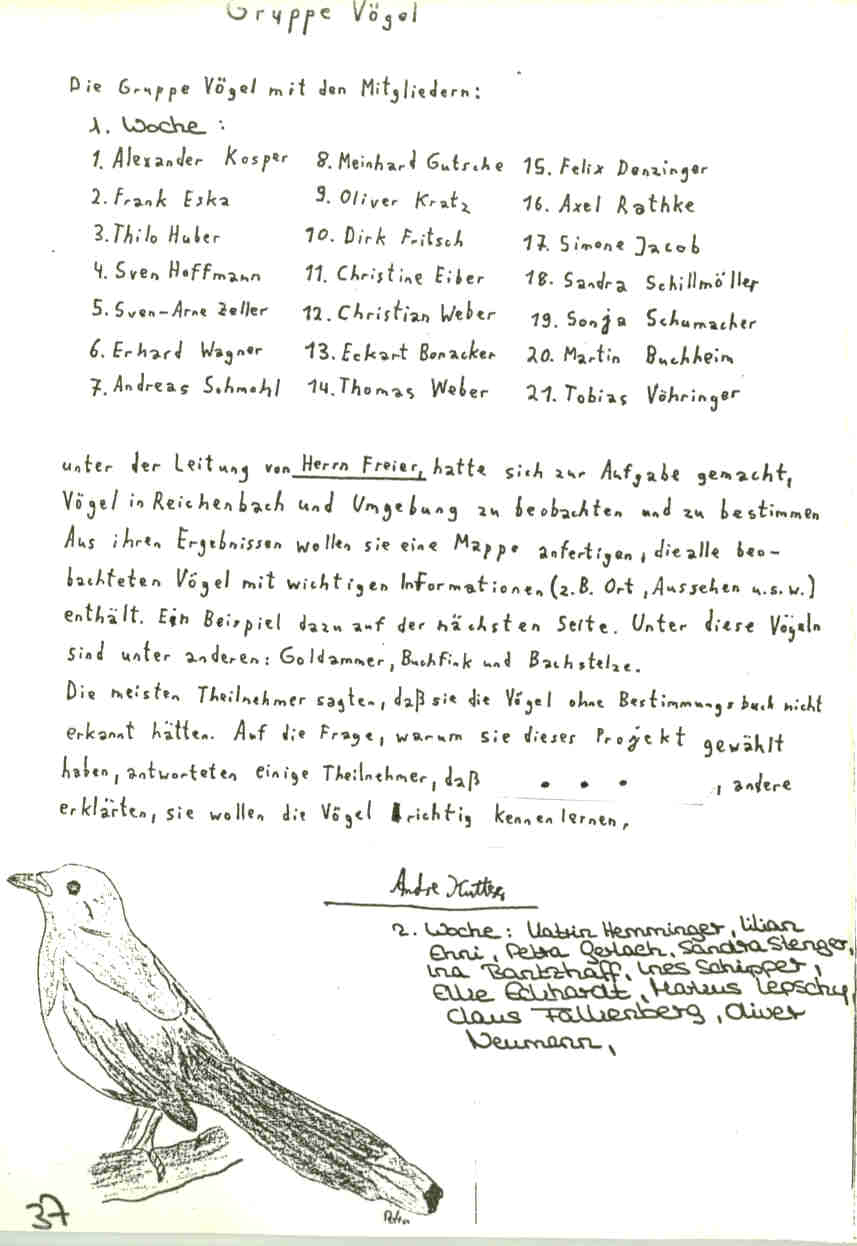 Gruppe Vögel
Die Gruppe Vögel mit den Mitgliedern:
1. Woche :
1. Alexander Kosper 8. Meinhard Gutsche 15. Felix Denzinger
2. Frank Eska 9. Oliver Kratz 16. Axel Rathke
3. Thilo Huber 10. Dirk Fritsch 17. Simone Jacob
4. Sven Hoffmann 11. Christine Eiber 18. Sandra Schillmöller
5. Sven-Arne Zeller 12. Christian Weber 19. Sonja Schumacher
6. Erhard Wagner 13. Eckart Bonacker 20. Martin Buchheim
7. Andreas Schmohl 14. Thomas Weber 21. Tobias Vöhringer
unter der Leitung von Herrn Freier, hatte sich zur Aufgabe gemacht,
Vögel in Reichenbach und Umgebung zu beobachten und zu bestimmen
Aus ihren Ergebnissen wollen sie eine Mappe anfertigen, die alle beo-
bachteten Vögel mit wichtigen Informationen (z.B. Ort, Aussehen u.s.w.)
enthält. Ein Beispiel dazu auf der nächsten Seite. Unter diese Vögeln
sind unter anderen: Goldammer, Buchfink und Bachstelze.
Die meisten Theilnehmer sagten, daß sie die Vögel ohne Bestimmungsbuch nicht
erkannt hätten. Auf die Frage, warum sie dieses Projekt gewählt
haben, antworteten einige Theilnehmer, daß . . . , andere
erklärten, sie wollen die Vögel richtig kennen lernen,
Andre Kutter
2. Woche : Katrin Hemminger, Lilian
Enni, Petra Gerlach, Sandra Stenger,
Ina Bantzhaff, Ines Schipper,
Elke Eckhardt, Markus Lepschy,
Claus Falkenberg, Oliver
Neumann,
Petra
37